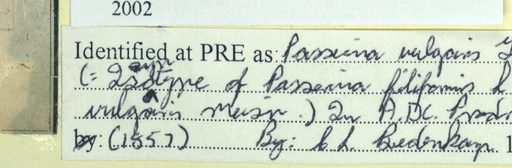 2002
Identified at PRE as: Passerina vulgaris T
(= Isotype of Passerina filiformis L.
vulgaris Meisn.) In A.DC. Prodr
by: (1857) By: C.L. Bredenkamp. 1